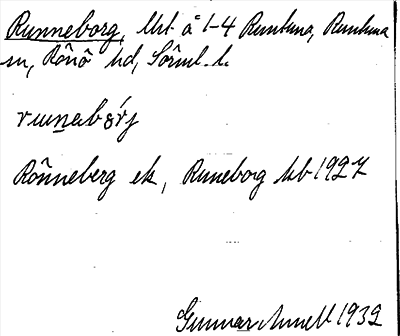 Runneborg, lht å 1-4 Runtuna, Runtuna
sn, Rönö hd, Sörml. l.
Rönneberg ek, Runeborg kb 1927
Gunnar Amell 1932